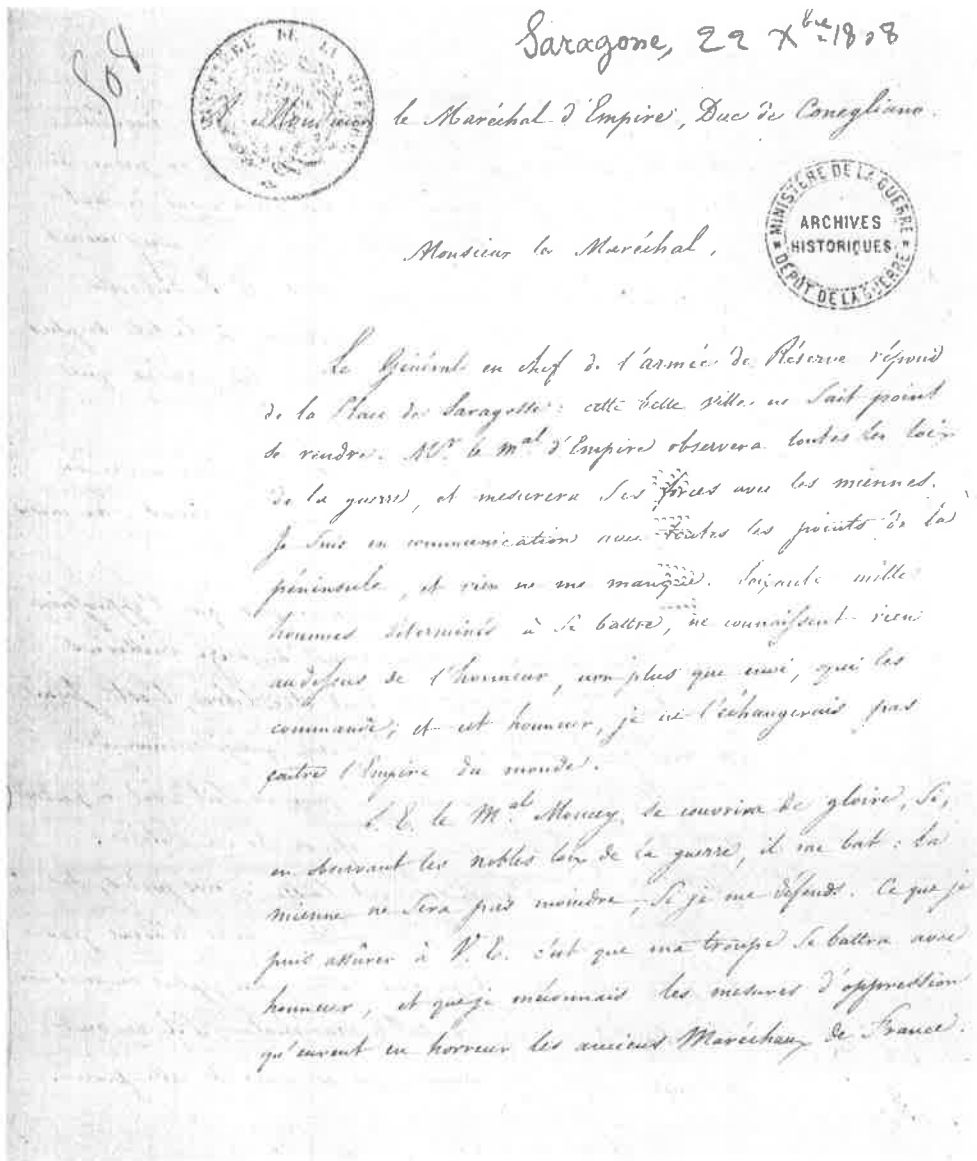 Saragosse, 22 Xbre 1808
508
MINISTÈRE DE LA GUERRE
A Monsieur le Maréchal d'Empire, Duc de Conegliano.
MINISTÈRE DE LA GUERRE
ARCHIVES
HISTORIQUES
DÉPOT DE LA GUERRE
Monsieur le Maréchal,
Le Général en chef de l'armée de Réserve répond
de la Place de Saragosse: cette belle ville ne sait point
se rendre. Mr. le Mal d'Empire observera toutes les loix
de la guerre, et mesurera ses forces avec les miennes.
Je suis en communication avec toutes les points de la
péninsule, et rien ne me manque. Soixante mille
hommes déterminés à se battre, ne connaissent rien
audessus de l'honneur, non plus que moi, qui les
commande; et cet honneur, je ne l'échangerais pas
contre l'Empire du monde.
S. E. le Mal Moncey se couvrira de gloire, si,
en observant les nobles loix de la guerre, il me bat: la
mienne ne sera pas moindre, si je me défends. Ce que je
puis assurer à V. E. c'est que ma troupe se battra avec
honneur, et que je méconnais les mesures d'oppression
qu'eurent en horreur les anciens Maréchaux de France.